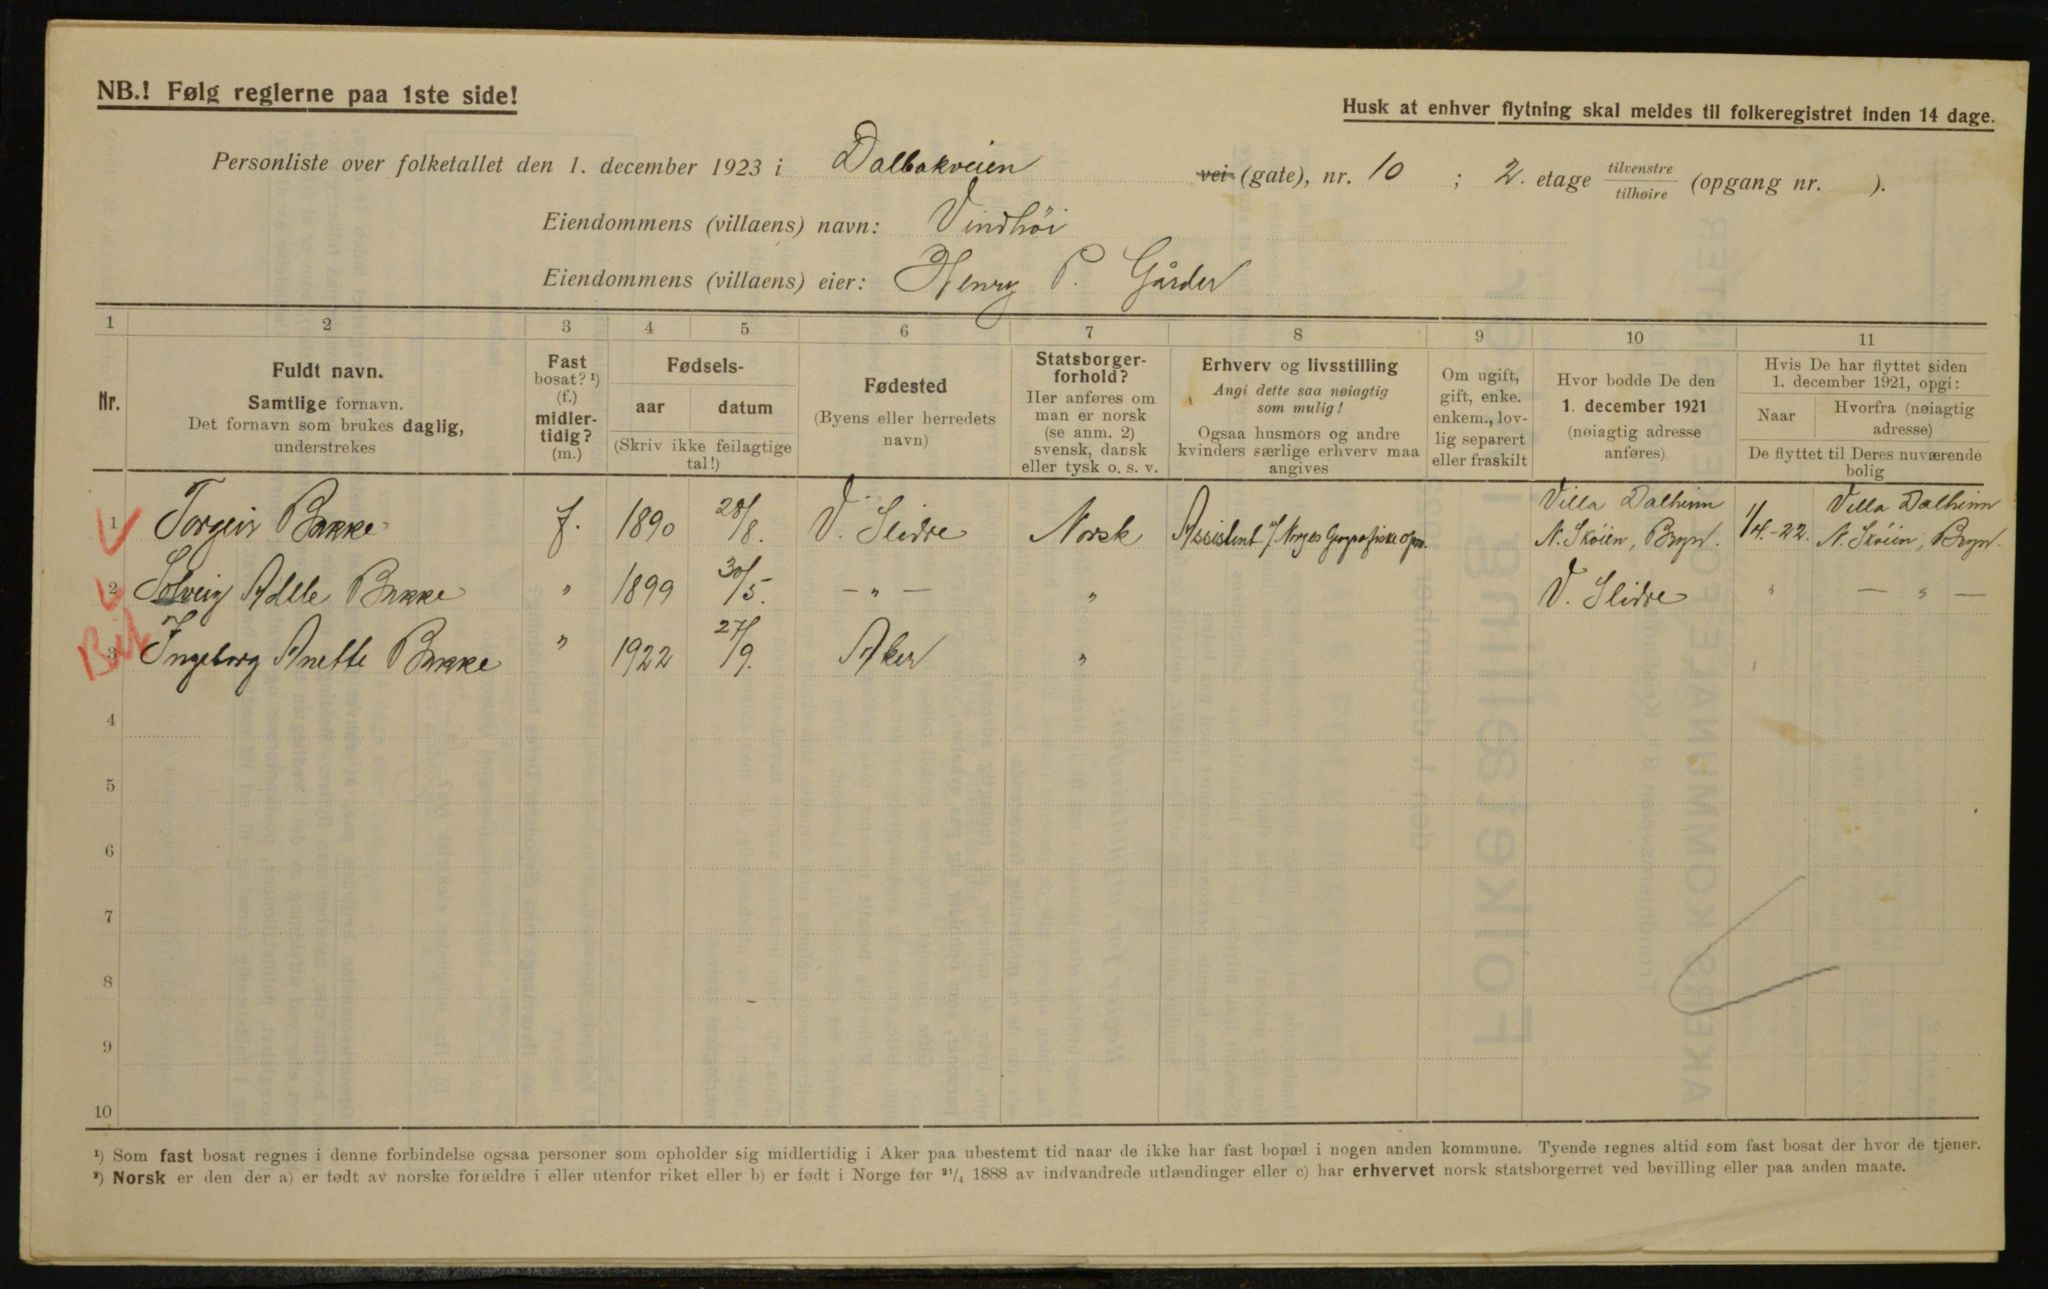 NB.! Følg reglerne paa 1ste side!
Husk at enhver flytning skal meldes til folkeregistret inden 14 dage.
Personliste over folketallet den 1. december 1923 i Dalbakveien vei (gate), nr. 10 ; 2. etage tilvenstre tilhøire (opgang nr. ).
Eiendommens (villaens) navn: Vindhöi
Eiendommens (villaens) eier: Henry P. Gårder
1 2 3 4 5 6 7 8 9 10 11
Nr.
Fuldt navn.
Samtlige fornavn.
Det fornavn som brukes daglig,
understrekes
Fast
bosat? ¹)
(f.)
midler-
tidig?
(m.)
Fødsels-
aar datum
(Skriv ikke feilagtige
tal!)
Fødested
(Byens eller herredets
navn)
Statsborger-
forhold?
Her anføres om
man er norsk
(se anm. 2)
svensk, dansk
eller tysk o. s. v.
Erhverv og livsstilling
Angi dette saa nøiagtig
som mulig!
Ogsaa husmors og andre
kvinders særlige erhverv maa
angives
Om ugift,
gift, enke.
enkem., lov-
lig separert
eller fraskilt
Hvor bodde De den
1. december 1921
(nøiagtig adresse
anføres)
Hvis De har flyttet siden
1. december 1921, opgi:
Naar Hvorfra (nøiagtig
adresse)
De flyttet til Deres nuværende
bolig
Villa Dalheim Villa Dalheim
1 Torgeir Bakke f. 1890 28/8. V. Slidre Norsk Assistent v/ Norges Geografiske opm. N. Skøien, Bryn. 1/4.-22. N. Skøien, Bryn.
2 Solveig Adele Bakke " 1899 30/5. — " — " V. Slidre " — " —
Bil
3 Ingeborg Anette Bakke " 1922 27/9. Aker "
4
5
6
7
8
9
10
¹) Som fast bosat regnes i denne forbindelse ogsaa personer som opholder sig midlertidig i Aker paa ubestemt tid naar de ikke har fast bopæl i nogen anden kommune. Tyende regnes altid som fast bosat der hvor de tjener.
²) Norsk er den der a) er født av norske forældre i eller utenfor riket eller b) er født i Norge før ²¹/₄ 1888 av indvandrede utlændinger eller c) har erhvervet norsk statsborgerret ved bevilling eller paa anden maate.